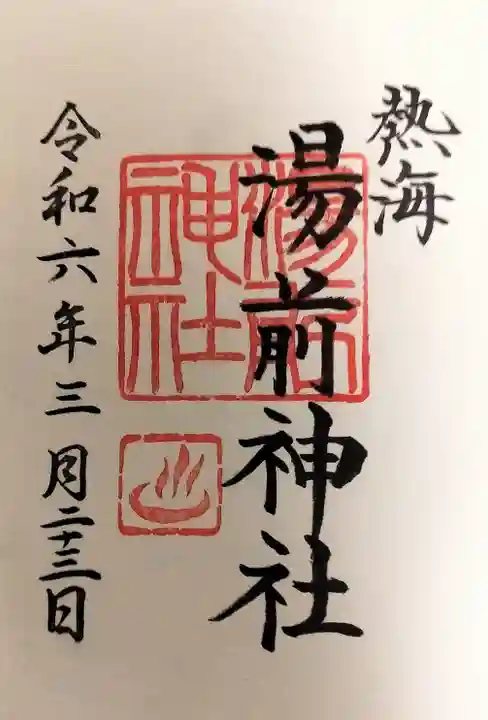 熱海
湯前神社
湯前神社
令和六年三月二十三日